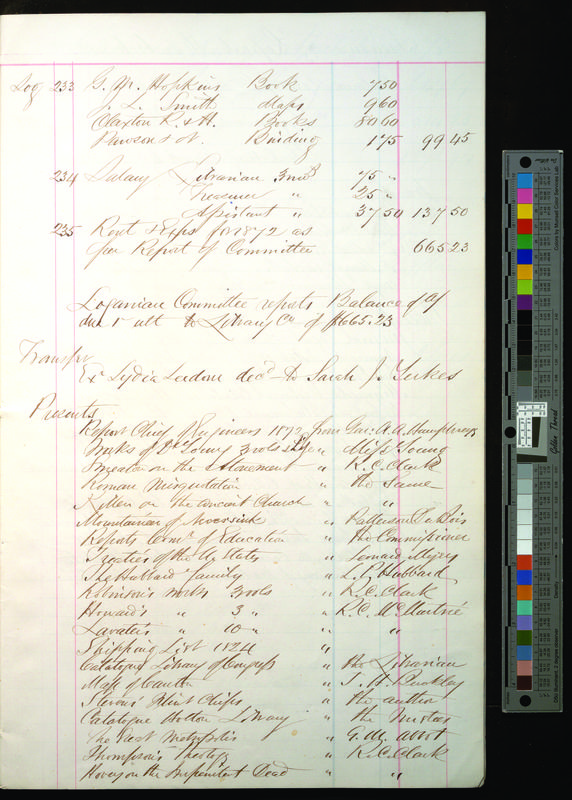 Log 233 G. M. Hopkins Book 7 50
J. L. Smith Maps 9 60
Claxton R. & H. Books 80 60
Pawson & N. Binding 1 75 99 45
234 Salary Librarian 3 mos 75 "
Treasurer " 25 "
Assistant " 37 50 137 50
235 Rent & Exps for 1872 as
per Report of Committee 665 23
Loganian Committee reports Balance of a/
due 1 ult to Library Co of $665.23
Transfer
Ex Lydia decd to Sarah J. Yerkes
Presents
Report Chief of Engineers 1872 from Gen: A. A. Humphreys
Works of Dr Young 3 vols & Life " Miss Young
on the Atonement " R. C. Clark
Roman Misquotation " The Same
Killen on the Ancient Church " "
Mountaineer of Neversink " Patterson Du Bois
Reports Comr of Education " The Commissioner
Treaties of the U. States " Leonard Myers
The Hubbard family " L. P. Hubbard
Robinson's works 3 vols " R. C. Clark
Howard's " 3 " " R. C. McMurtrie
Lavater's " 10 " " "
Shipping List 1824 "
Catalogue Library of Congress " the Librarian
Map of Canton " J. H.
Stevens' Flint Chips " the author
Catalogue Library " the Trustees
The Past Metropolis " G. M. Abbot
Thompson's Theology " R. C. Clark
Hovey on the Impenitent Dead " "